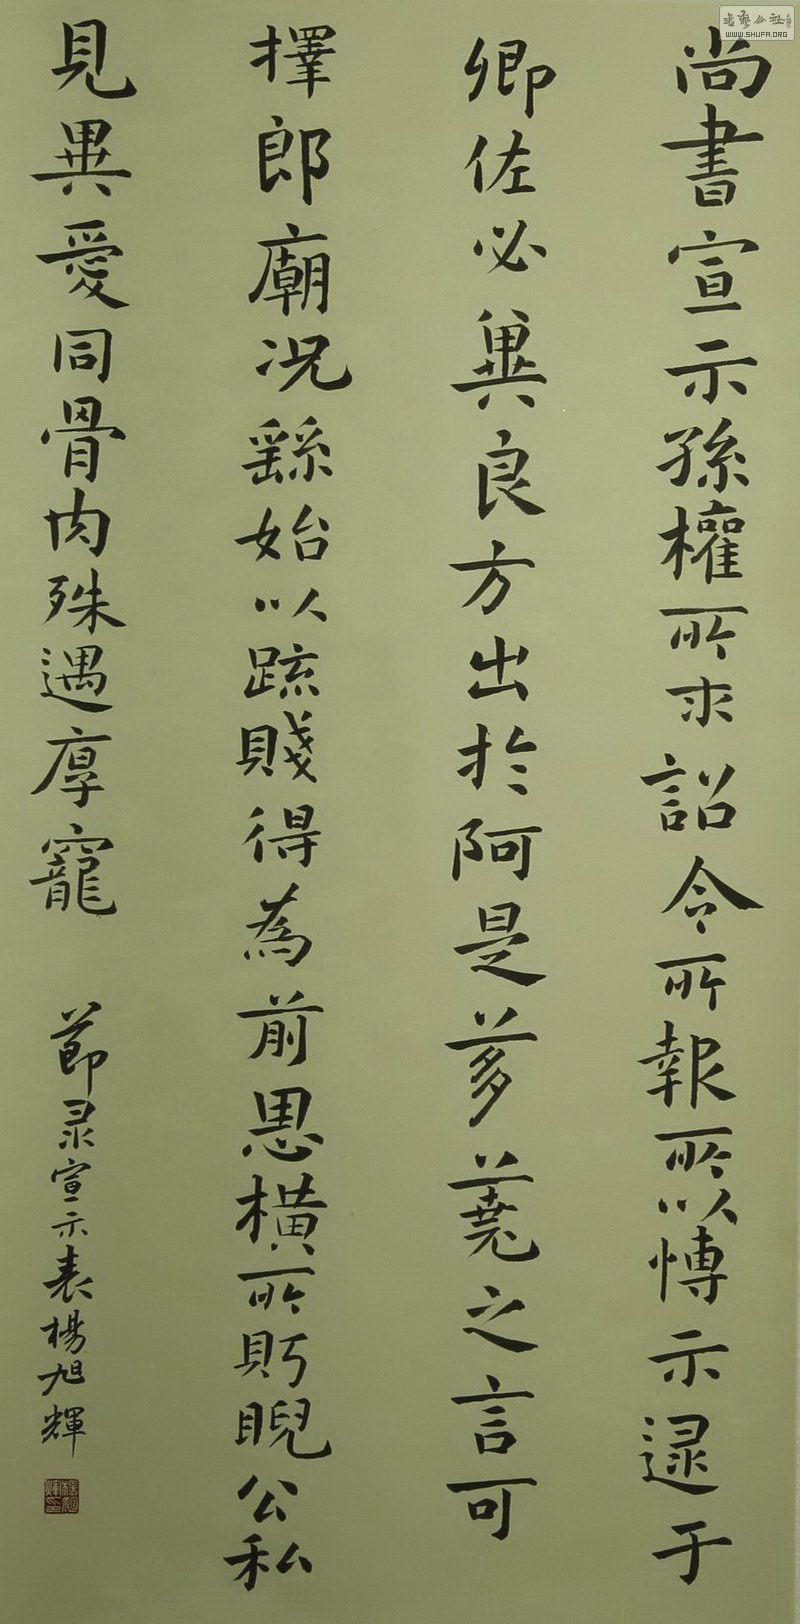 尚書宣示孫權所求詔令所報所以博示逯于
卿佐必冀良方出於阿是芻蕘之言可
擇郎廟況繇始以疏賤得為前恩橫所盻睨公私
見異愛同骨肉殊遇厚寵
節录宣示表楊旭輝
書藝公社
WWW.SHUFA.ORG